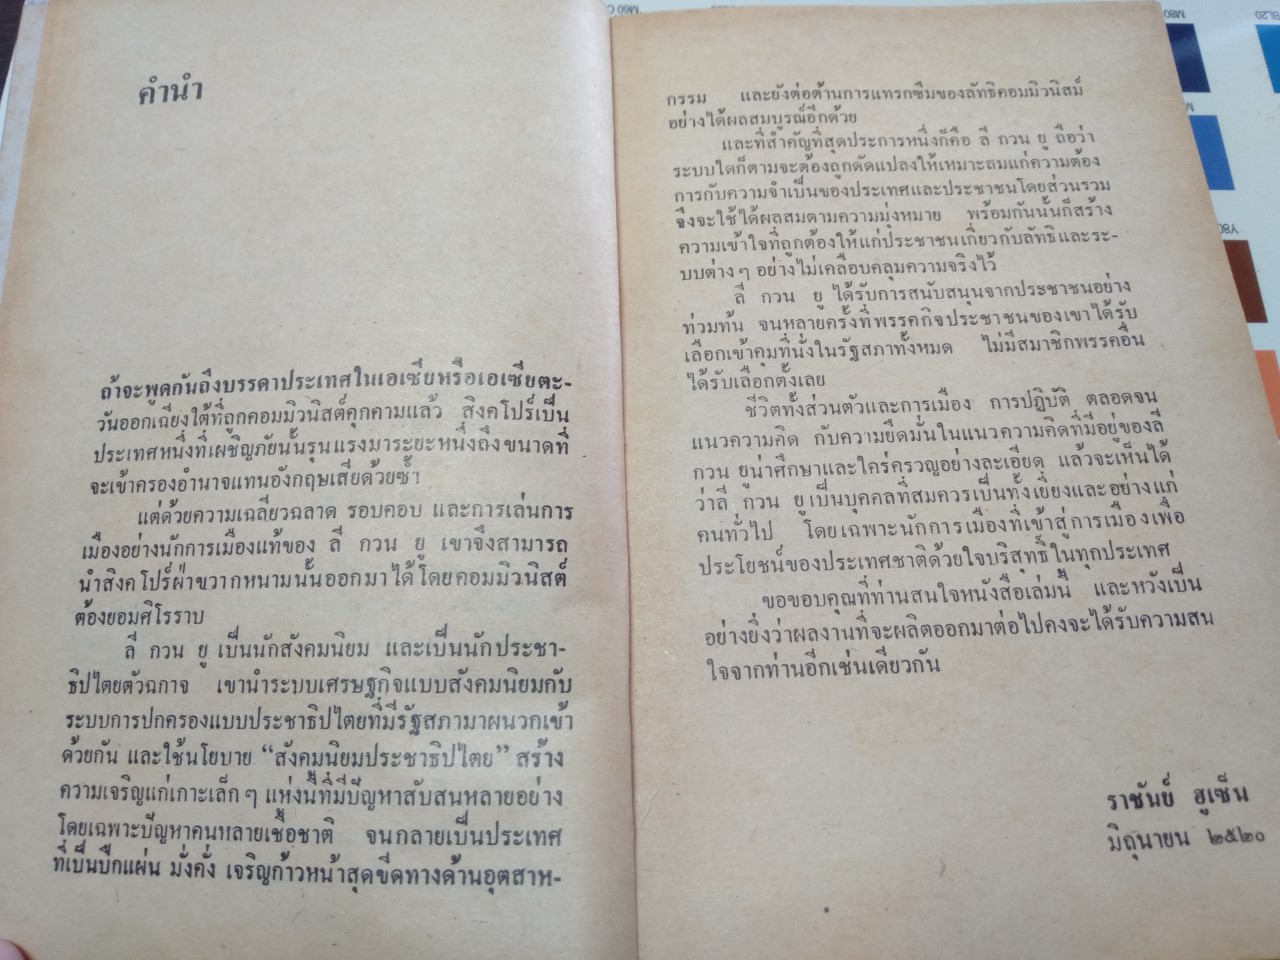 คำนำ
ถ้าจะพูดกันถึงบรรดาประเทศในเอเซียหรือเอเซียตะ-
วันออกเฉียงใต้ที่ถูกคอมมิวนิสต์คุกคามแล้ว สิงคโปร์เป็น
ประเทศหนึ่งที่เผชิญภัยนั้นรุนแรงมาระยะหนึ่งถึงขนาดที่
จะเข้าครองอำนาจแทนอังกฤษเสียด้วยซ้ำ
แต่ด้วยความเฉลียวฉลาด รอบคอบ และการเล่นการ
เมืองอย่างนักการเมืองแท้ของ ลี กวน ยู เขาจึงสามารถ
นำสิงคโปร์ฝ่าขวากหนามนั้นออกมาได้โดยคอมมิวนิสต์
ต้องยอมศิโรราบ
ลี กวน ยู เป็นนักสังคมนิยม และเป็นนักประชา-
ธิปไตยตัวฉกาจ เขานำระบบเศรษฐกิจแบบสังคมนิยมกับ
ระบบการปกครองแบบประชาธิปไตยที่มีรัฐสภามาผนวกเข้า
ด้วยกัน และใช้นโยบาย “สังคมนิยมประชาธิปไตย” สร้าง
ความเจริญแก่เกาะเล็กๆ แห่งนี้ที่มีปัญหาสับสนหลายอย่าง
โดยเฉพาะปัญหาคนหลายเชื้อชาติ จนกลายเป็นประเทศ
ที่เป็นปึกแผ่น มั่งคั่ง เจริญก้าวหน้าสุดขีดทางด้านอุตสาห-
กรรม และยังต่อต้านการแทรกซึมของลัทธิคอมมิวนิสม์
อย่างได้ผลสมบูรณ์อีกด้วย
และที่สำคัญที่สุดประการหนึ่งก็คือ ลี กวน ยู ถือว่า
ระบบใดก็ตามจะต้องถูกดัดแปลงให้เหมาะสมแก่ความต้อง
การกับความจำเป็นของประเทศและประชาชนโดยส่วนรวม
จึงจะใช้ได้ผลสมตามความมุ่งหมาย พร้อมกันนั้นก็สร้าง
ความเข้าใจที่ถูกต้องให้แก่ประชาชนเกี่ยวกับลัทธิและระ-
บบต่างๆ อย่างไม่เคลือบคลุมความจริงไว้
ลี กวน ยู ได้รับการสนับสนุนจากประชาชนอย่าง
ท่วมท้น จนหลายครั้งที่พรรคกิจประชาชนของเขาได้รับ
เลือกเข้าคุมที่นั่งในรัฐสภาทั้งหมด ไม่มีสมาชิกพรรคอื่น
ได้รับเลือกตั้งเลย
ชีวิตทั้งส่วนตัวและการเมือง การปฏิบัติ ตลอดจน
แนวความคิด กับความยึดมั่นในแนวความคิดที่มีอยู่ของลี
กวน ยูน่าศึกษาและใคร่ครวญอย่างละเอียด แล้วจะเห็นได้
ว่าลี กวน ยูเป็นบุคคลที่สมควรเป็นทั้งเยี่ยงและอย่างแก่
คนทั่วไป โดยเฉพาะนักการเมืองที่เข้าสู่การเมืองเพื่อ
ประโยชน์ของประเทศชาติด้วยใจบริสุทธิ์ในทุกประเทศ
ขอขอบคุณที่ท่านสนใจหนังสือเล่มนี้ และหวังเป็น
อย่างยิ่งว่าผลงานที่จะผลิตออกมาต่อไปคงจะได้รับความสน
ใจจากท่านอีกเช่นเดียวกัน
ราชันย์ ฮูเซ็น
มิถุนายน ๒๕๒๐
M80
BL20
Y80